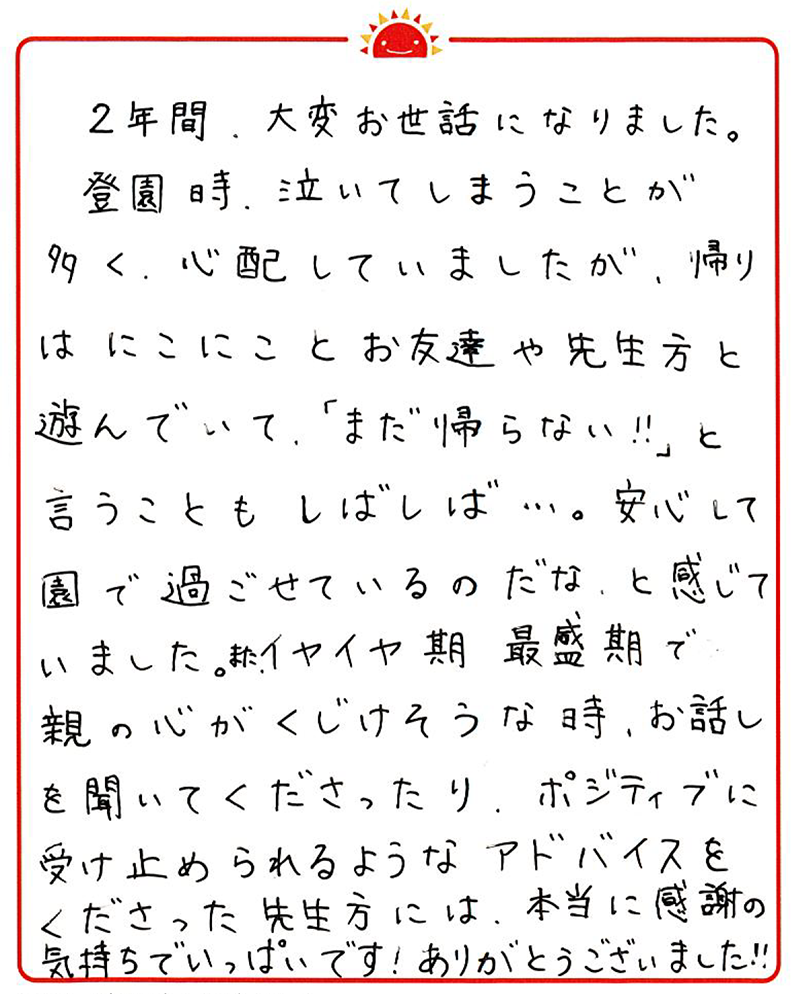 2年間、大変お世話になりました。
登園時、泣いてしまうことが
多く、心配していましたが、帰り
は にこにことお友達や先生方と
遊んでいて、「まだ帰らない!!」と
言うことも しばしば…。安心して
園で過ごせているのだな、と感じて
いました。また、イヤイヤ期 最盛期で
親の心がくじけそうな時、お話し
を聞いてくださったり、ポジティブに
受け止められるような アドバイスを
くださった先生方には、本当に感謝の
気持ちでいっぱいです!ありがとうございました!!